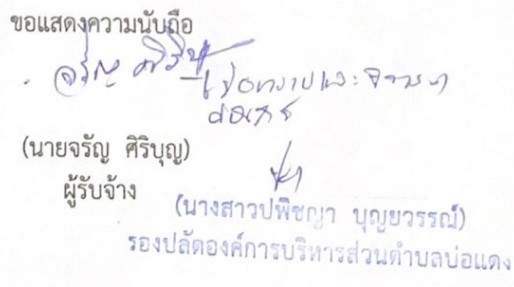 ขอแสดงความนับถือ
จรัญ ศิริบุญ
เพื่อทราบและพิจารณา
(นายจรัญ ศิริบุญ)
ผู้รับจ้าง
(นางสาวปพิชญา บุญยวรรณ์)
รองปลัดองค์การบริหารส่วนตำบลบ่อแดง